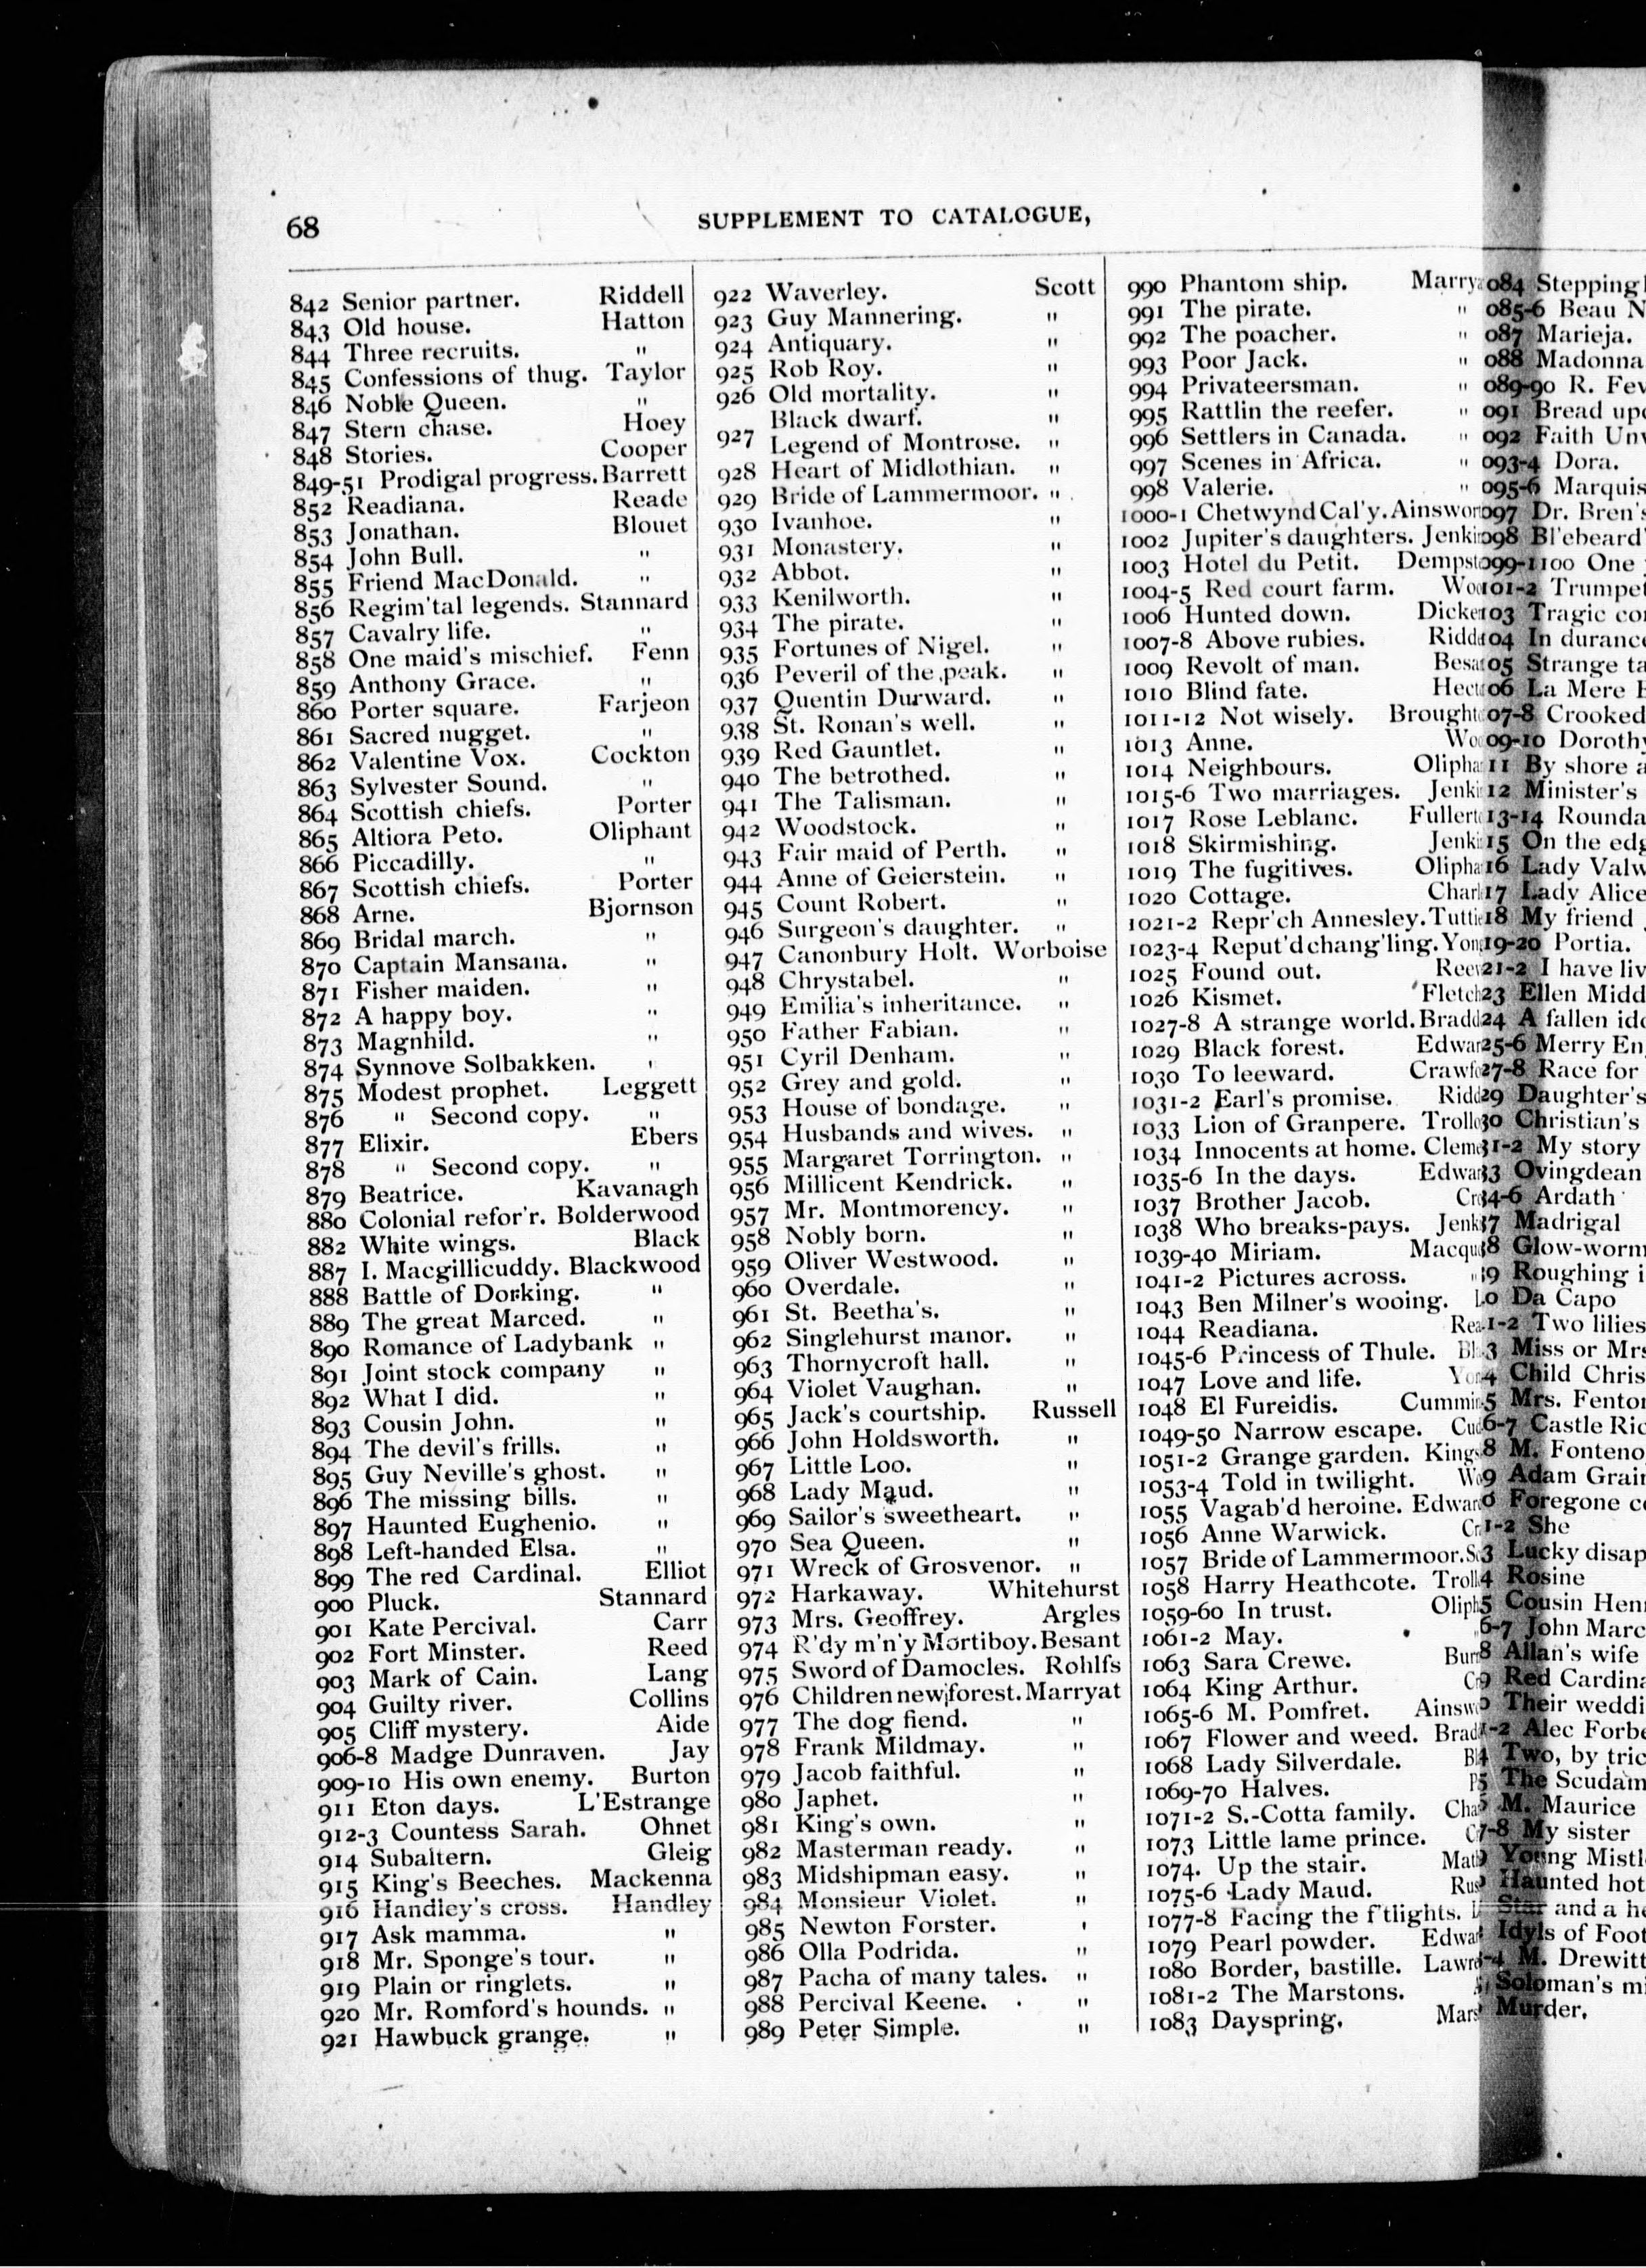 68
SUPPLEMENT TO CATALOGUE,
842 Senior partner. Riddell
843 Old house. Hatton
844 Three recruits. "
845 Confessions of thug. Taylor
846 Noble Queen. "
847 Stern chase. Hoey
848 Stories. Cooper
849-51 Prodigal progress. Barrett
852 Readiana. Reade
853 Jonathan. Blouet
854 John Bull. "
855 Friend MacDonald. "
856 Regim'tal legends. Stannard
857 Cavalry life. "
858 One maid's mischief. Fenn
859 Anthony Grace. "
860 Porter square. Farjeon
861 Sacred nugget. "
862 Valentine Vox. Cockton
863 Sylvester Sound. "
864 Scottish chiefs. Porter
865 Altiora Peto. Oliphant
866 Piccadilly. "
867 Scottish chiefs. Porter
868 Arne. Bjornson
869 Bridal march. "
870 Captain Mansana. "
871 Fisher maiden. "
872 A happy boy. "
873 Magnhild. "
874 Synnove Solbakken. "
875 Modest prophet. Leggett
876 " Second copy. "
877 Elixir. Ebers
878 " Second copy. "
879 Beatrice. Kavanagh
880 Colonial refor'r. Bolderwood
882 White wings. Black
887 I. Macgillicuddy. Blackwood
888 Battle of Dorking. "
889 The great Marced. "
890 Romance of Ladybank "
891 Joint stock company "
892 What I did. "
893 Cousin John. "
894 The devil's frills. "
895 Guy Neville's ghost. "
896 The missing bills. "
897 Haunted Eughenio. "
898 Left-handed Elsa. "
899 The red Cardinal. Elliot
900 Pluck. Stannard
901 Kate Percival. Carr
902 Fort Minster. Reed
903 Mark of Cain. Lang
904 Guilty river. Collins
905 Cliff mystery. Aide
906-8 Madge Dunraven. Jay
909-10 His own enemy. Burton
911 Eton days. L'Estrange
912-3 Countess Sarah. Ohnet
914 Subaltern. Gleig
915 King's Beeches. Mackenna
916 Handley's cross. Handley
917 Ask mamma. "
918 Mr. Sponge's tour. "
919 Plain or ringlets. "
920 Mr. Romford's hounds. "
921 Hawbuck grange. "
922 Waverley. Scott
923 Guy Mannering. "
924 Antiquary. "
925 Rob Roy. "
926 Old mortality. "
Black dwarf. "
927 Legend of Montrose. "
928 Heart of Midlothian. "
929 Bride of Lammermoor. "
930 Ivanhoe. "
931 Monastery. "
932 Abbot. "
933 Kenilworth. "
934 The pirate. "
935 Fortunes of Nigel. "
936 Peveril of the peak. "
937 Quentin Durward. "
938 St. Ronan's well. "
939 Red Gauntlet. "
940 The betrothed. "
941 The Talisman. "
942 Woodstock. "
943 Fair maid of Perth. "
944 Anne of Geierstein. "
945 Count Robert. "
946 Surgeon's daughter. "
947 Canonbury Holt. Worboise
948 Chrystabel. "
949 Emilia's inheritance. "
950 Father Fabian. "
951 Cyril Denham. "
952 Grey and gold. "
953 House of bondage. "
954 Husbands and wives. "
955 Margaret Torrington. "
956 Millicent Kendrick. "
957 Mr. Montmorency. "
958 Nobly born. "
959 Oliver Westwood. "
960 Overdale. "
961 St. Beetha's. "
962 Singlehurst manor. "
963 Thornycroft hall. "
964 Violet Vaughan. "
965 Jack's courtship. Russell
966 John Holdsworth. "
967 Little Loo. "
968 Lady Maud. "
969 Sailor's sweetheart. "
970 Sea Queen. "
971 Wreck of Grosvenor. "
972 Harkaway. Whitehurst
973 Mrs. Geoffrey. Argles
974 R'dy m'n'y Mortiboy. Besant
975 Sword of Damocles. Rohlfs
976 Children new forest. Marryat
977 The dog fiend. "
978 Frank Mildmay. "
979 Jacob faithful. "
980 Japhet. "
981 King's own. "
982 Masterman ready. "
983 Midshipman easy. "
984 Monsieur Violet. "
985 Newton Forster. "
986 Olla Podrida. "
987 Pacha of many tales. "
988 Percival Keene. "
989 Peter Simple. "
990 Phantom ship. Marry
991 The pirate. "
992 The poacher. "
993 Poor Jack. "
994 Privateersman. "
995 Rattlin the reefer. "
996 Settlers in Canada. "
997 Scenes in Africa. "
998 Valerie. "
1000-1 Chetwynd Cal'y. Ainswor
1002 Jupiter's daughters. Jenki
1003 Hotel du Petit. Dempst
1004-5 Red court farm. Woo
1006 Hunted down. Dicke
1007-8 Above rubies. Ridd
1009 Revolt of man. Besa
1010 Blind fate. Hect
1011-12 Not wisely. Brought
1013 Anne. Wo
1014 Neighbours. Olipha
1015-6 Two marriages. Jenki
1017 Rose Leblanc. Fullert
1018 Skirmishing. Jenki
1019 The fugitives. Olipha
1020 Cottage. Charl
1021-2 Repr'ch Annesley. Tutti
1023-4 Reput'd chang'ling. Yon
1025 Found out. Reev
1026 Kismet. Fletch
1027-8 A strange world. Bradd
1029 Black forest. Edwar
1030 To leeward. Crawf
1031-2 Earl's promise. Ridd
1033 Lion of Granpere. Trollo
1034 Innocents at home. Clem
1035-6 In the days. Edwar
1037 Brother Jacob. Cr
1038 Who breaks-pays. Jenk
1039-40 Miriam. Macqu
1041-2 Pictures across. "
1043 Ben Milner's wooing. L
1044 Readiana. Rea
1045-6 Princess of Thule. Bl
1047 Love and life. Yo
1048 El Fureidis. Cummi
1049-50 Narrow escape. Cu
1051-2 Grange garden. Kings
1053-4 Told in twilight. Wo
1055 Vagab'd heroine. Edwar
1056 Anne Warwick. Cr
1057 Bride of Lammermoor. S
1058 Harry Heathcote. Troll
1059-60 In trust. Oliph
1061-2 May. "
1063 Sara Crewe. Bur
1064 King Arthur. Cr
1065-6 M. Pomfret. Ainsw
1067 Flower and weed. Brad
1068 Lady Silverdale. B
1069-70 Halves. P
1071-2 S.-Cotta family. Cha
1073 Little lame prince. C
1074. Up the stair. Mat
1075-6 Lady Maud. Rus
1077-8 Facing the f'tlights.
1079 Pearl powder. Edwa
1080 Border, bastille. Lawr
1081-2 The Marstons.
1083 Dayspring. Mars
084 Stepping
085-6 Beau N
087 Marieja.
088 Madonna
089-90 R. Fev
091 Bread up
092 Faith Unw
093-4 Dora.
095-6 Marquis
097 Dr. Bren's
098 Bl'ebeard'
099-1100 One
101-2 Trumpe
103 Tragic co
104 In durance
105 Strange ta
106 La Mere B
07-8 Crooked
09-10 Dorothy
11 By shore a
12 Minister's
13-14 Rounda
15 On the edg
16 Lady Valw
17 Lady Alice
18 My friend
19-20 Portia.
21-2 I have liv
23 Ellen Midd
24 A fallen ido
25-6 Merry En
27-8 Race for
29 Daughter's
30 Christian's
31-2 My story
33 Ovingdean
34-6 Ardath
37 Madrigal
38 Glow-worm
39 Roughing i
0 Da Capo
1-2 Two lilies
3 Miss or Mrs
4 Child Chris
5 Mrs. Fenton
6-7 Castle Ric
8 M. Fonteno
9 Adam Grain
0 Foregone co
1-2 She
3 Lucky disap
4 Rosine
5 Cousin Henr
6-7 John Marc
8 Allan's wife
9 Red Cardina
0 Their weddi
1-2 Alec Forbe
4 Two, by tric
5 The Scudam
M. Maurice
7-8 My sister
Young Mistl
Haunted hot
Star and a he
Idyls of Foot
M. Drewitt
Soloman's mi
Murder.